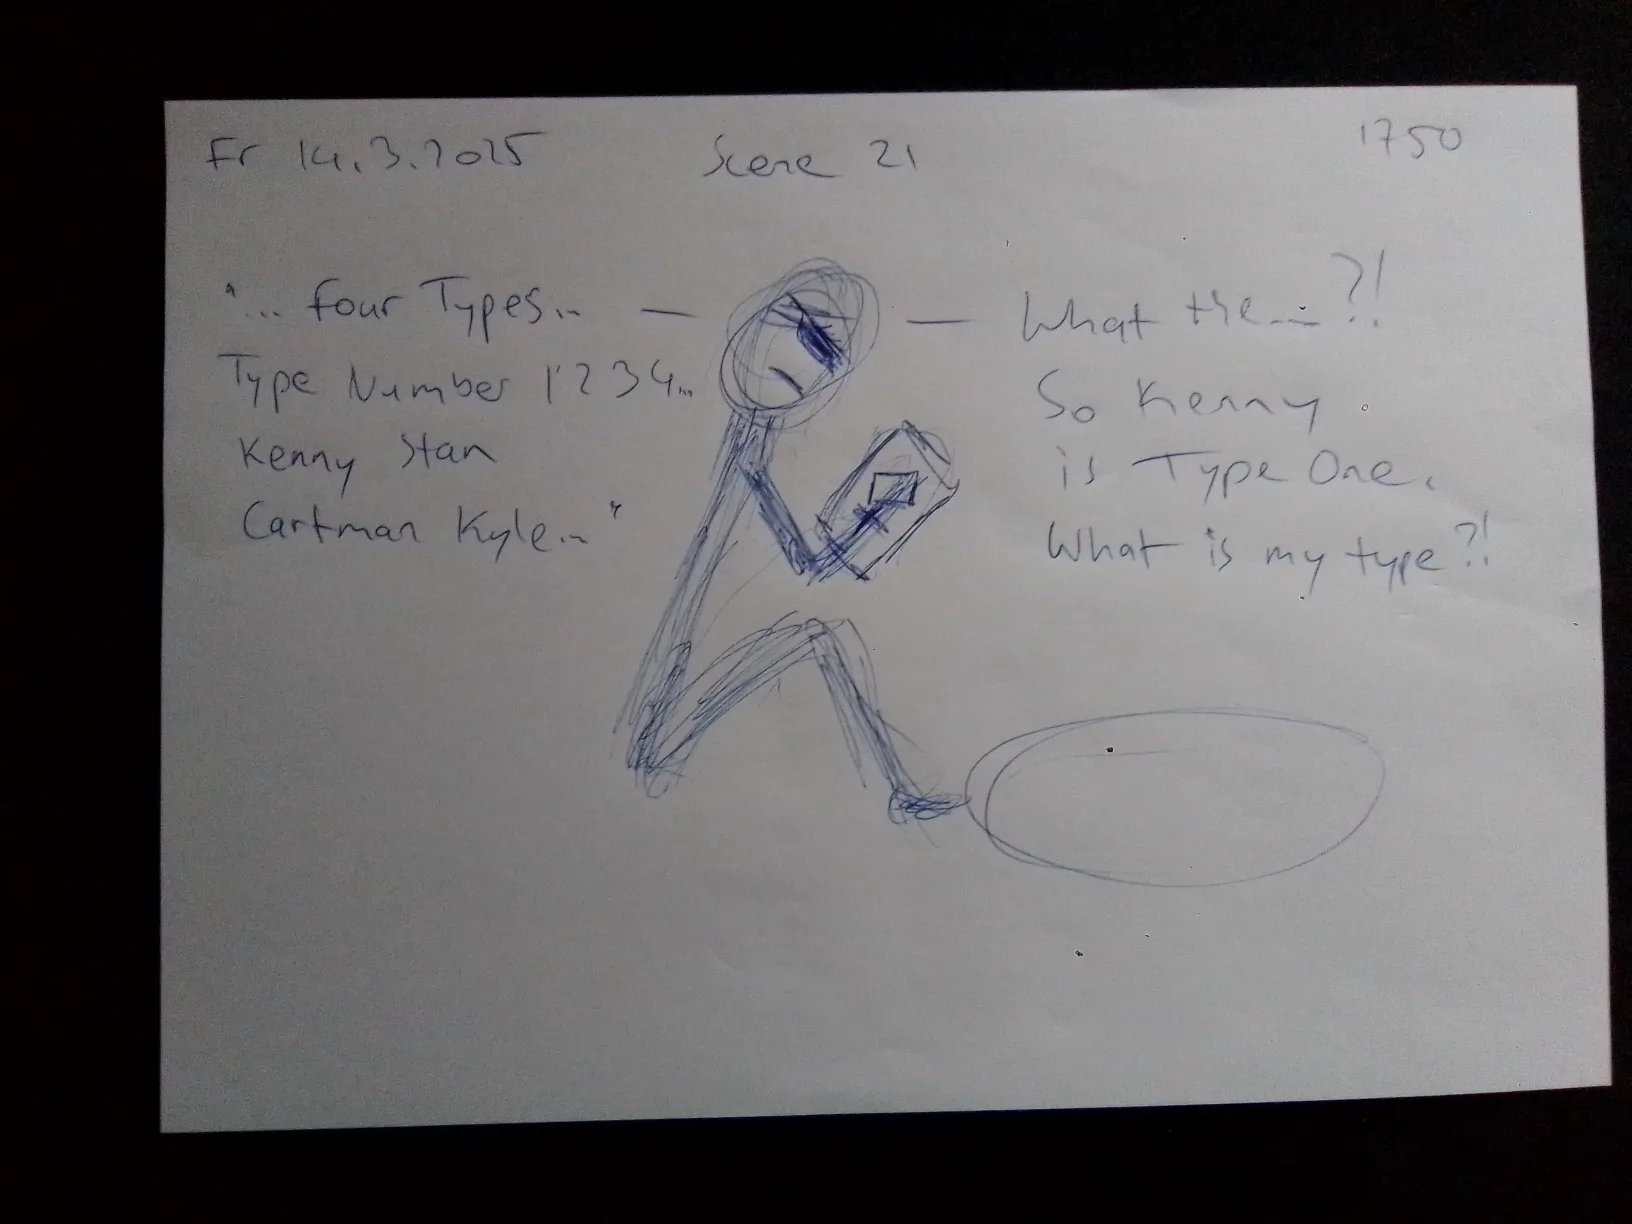 Fr 14.3.2025 Scene 21 1750
"... four Types...
Type Number 1 2 3 4...
Kenny Stan
Cartman Kyle..."
What the...?!
So Kenny
is Type One.
What is my type?!